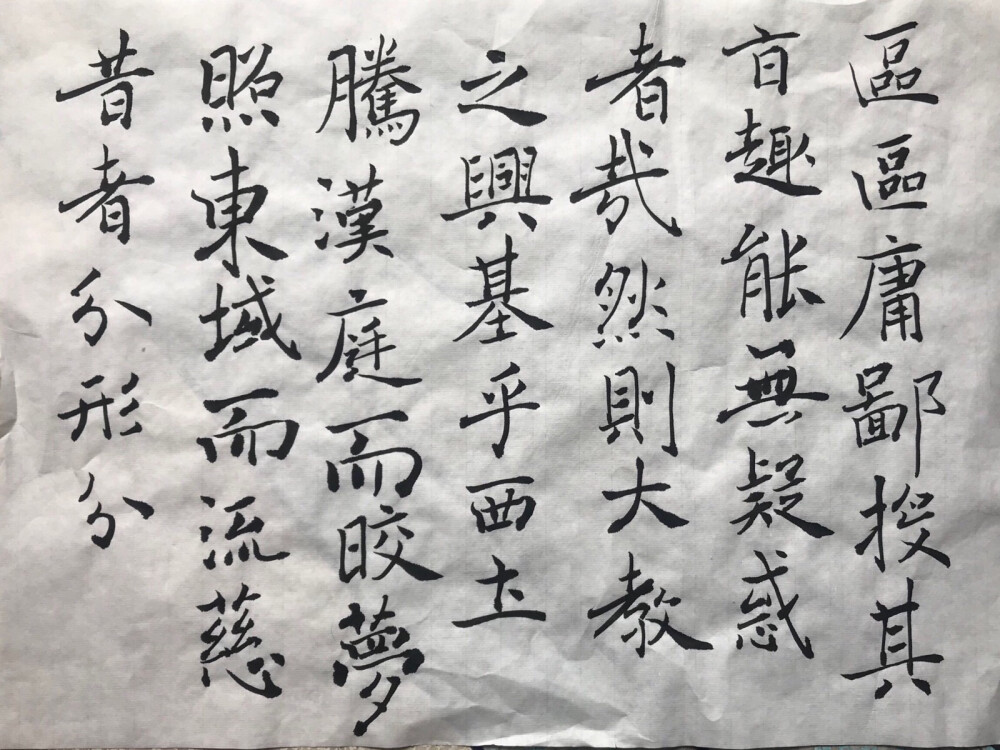 區區庸鄙投其
旨趣能無疑惑
者哉然則大教
之興基乎西土
騰漢庭而皎夢
照東域而流慈
昔者分形分